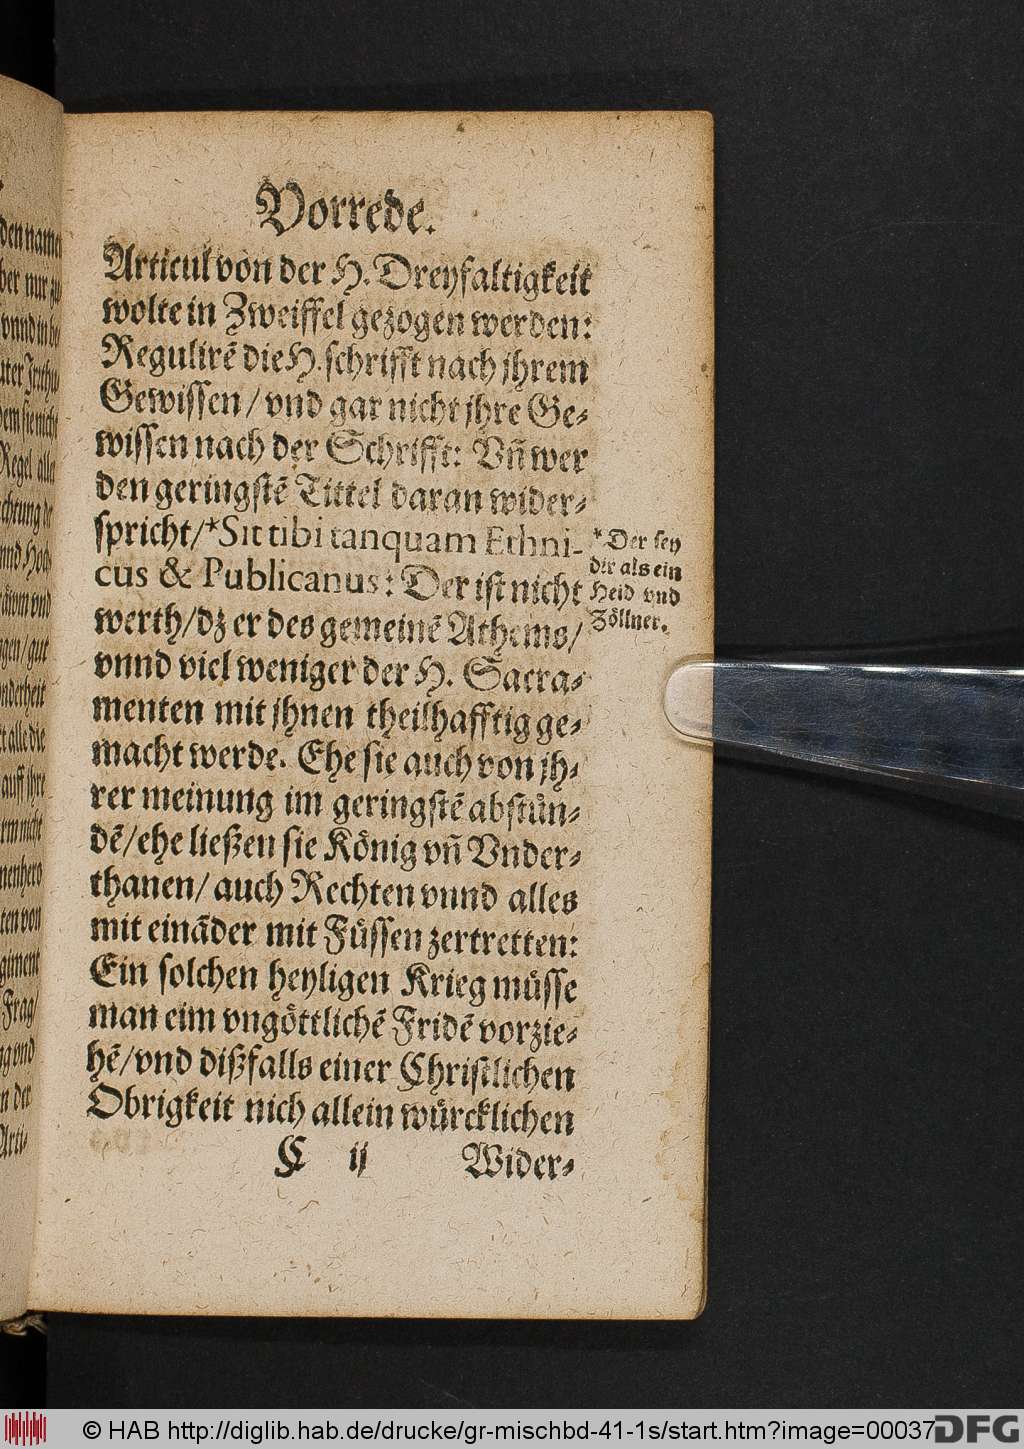 Vorrede.
Articul von der H. Dreyfaltigkeit
wolte in Zweiffel gezogen werden:
Regulirẽ die H. schrifft nach jhrem
Gewissen/ vnd gar nicht jhre Ge-
wissen nach der Schrifft: Vñ wer
den geringstẽ Tittel daran wider-
spricht/*Sit tibi tanquam Ethni-
cus & Publicanus: Der ist nicht
werth/dz er des gemeinẽ Athems/
vnnd viel weniger der H. Sacra-
menten mit jhnen theilhafftig ge-
macht werde. Ehe sie auch von jh-
rer meinung im geringstẽ abstün-
dẽ/ehe ließen sie König vñ Vnder-
thanen/ auch Rechten vnnd alles
mit einãder mit Füssen zertretten:
Ein solchen heyligen Krieg müsse
man eim vngöttlichẽ Fridẽ vorzie-
hẽ/vnd dißfalls einer Christlichen
Obrigkeit nich allein würcklichen
C ij Wider-
*Der sey
dir als ein
Heid vnd
Zöllner.
© HAB http://diglib.hab.de/drucke/gr-mischbd-41-1s/start.htm?image=00037
DFG